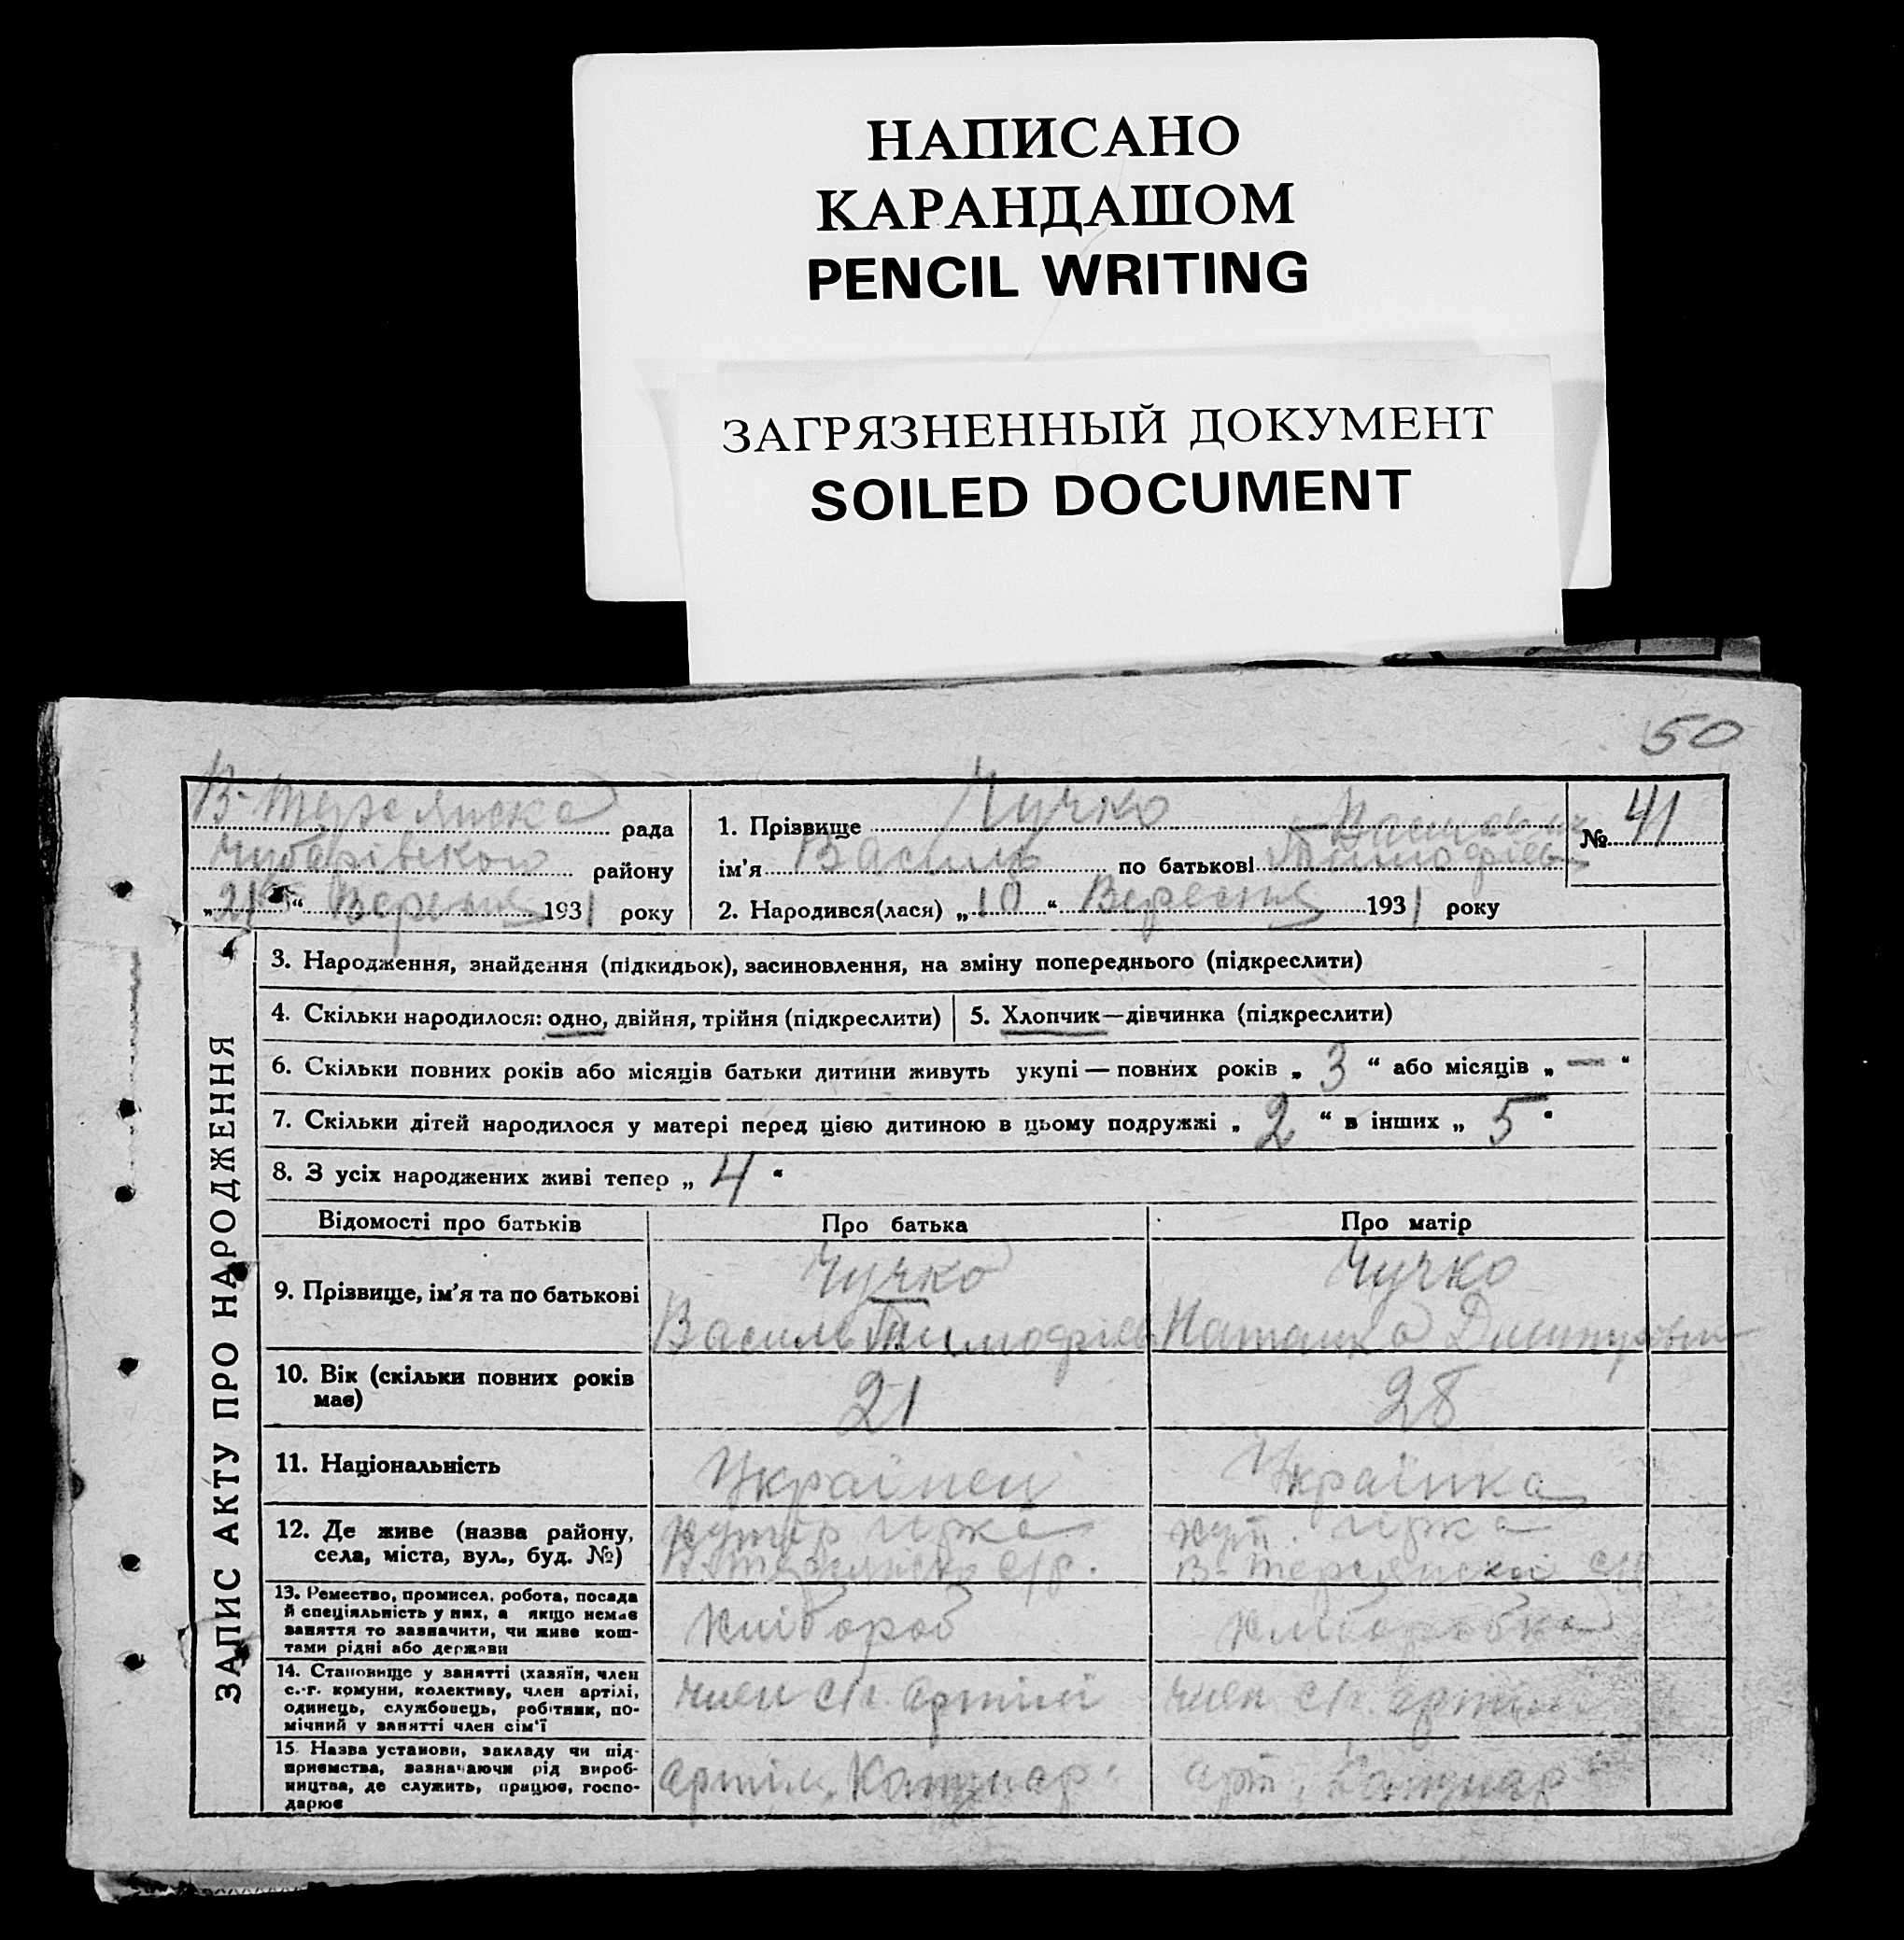 НАПИСАНО
КАРАНДАШОМ
PENCIL WRITING
ЗАГРЯЗНЕННЫЙ ДОКУМЕНТ
SOILED DOCUMENT
50
В-Терсянска рада
Чубарівського району
„21“ Вересня 1931 року
1. Прізвище Чучко
ім’я Василь по батькові Васильович
№ 41
2. Народився(лася) „10“ Вересня 1931 року
ЗАПИС АКТУ ПРО НАРОДЖЕННЯ
3. Народження, знайдення (підкидьок), засиновлення, на зміну попереднього (підкреслити)
4. Скільки народилося: одно, двійня, трійня (підкреслити)
5. Хлопчик—дівчинка (підкреслити)
6. Скільки повних років або місяців батьки дитини живуть укупі — повних років „ 3 “ або місяців „ — “
7. Скільки дітей народилося у матері перед цією дитиною в цьому подружжі „ 2 “ в інших „ 5 “
8. З усіх народжених живі тепер „ 4 “
Відомості про батьків
Про батька
Про матір
9. Прізвище, ім’я та по батькові
Чучко
Василь Тимофієв
Чучко
Наталка Дмитровна
10. Вік (скільки повних років має)
21
28
11. Національність
Українец
Українка
12. Де живе (назва району, села, міста, вул., буд. №)
хутір Гірка
В-Терсянско с/р.
хут. Гірка
В-Терсянской с/р
13. Ремество, промисел, робота, посада
й спеціяльність у них, а якщо немає
заняття то зазначити, чи живе кош-
тами рідні або держави
Хлібороб
Хліборобка
14. Становище у занятті (хазяїн, член
с.-г. комуни, колективу, член артілі,
одинець, службовець, робітник, по-
мічний у занятті член сім’ї
член с/г. артілі
член с/г. артілі
15. Назва установи, закладу чи під-
приємства, зазначаючи рід вироб-
ництва, де служить, працює, госпо-
дарює
артіль
арт.